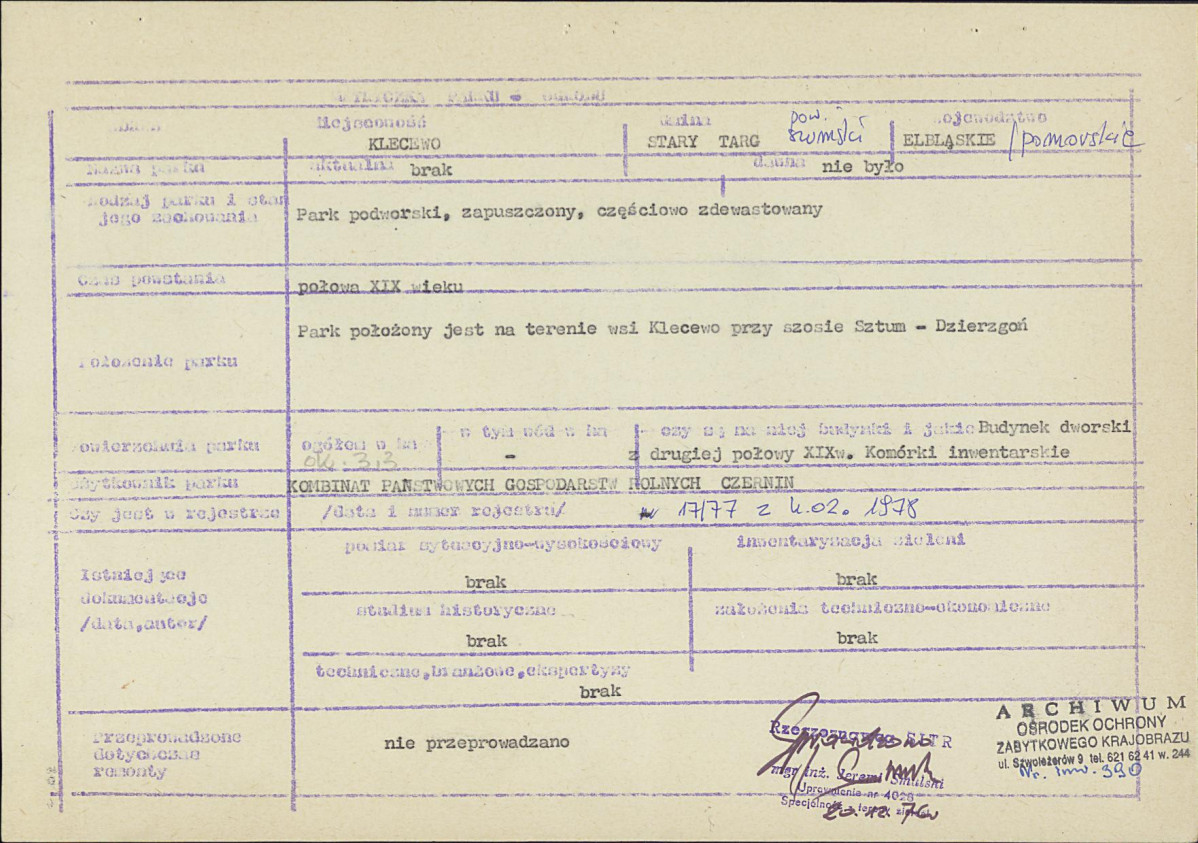 PARKU - OGRODU
Miejscowość Gmina pow. Województwo
KLECEWO STARY TARG sztumski ELBLĄSKIE /pomorskie
Nazwa parku aktualna brak dawna nie było
Rodzaj parku i stan
jego zachowania
Park podworski, zapuszczony, częściowo zdewastowany
Czas powstania
połowa XIX wieku
Park położony jest na terenie wsi Klecewo przy szosie Sztum - Dzierzgoń
Położenie parku
Powierzchnia parku ogółem w ha w tym wód w ha czy są na niej budynki i jakie Budynek dworski
ok. 3,3 - z drugiej połowy XIXw. Komórki inwentarskie
Użytkownik parku KOMBINAT PAŃSTWOWYCH GOSPODARSTW ROLNYCH CZERNIN
Czy jest w rejestrze /data i numer rejestru/ nr 17/77 z 4.02. 1978
pomiar sytuacyjno-wysokościowy inwentaryzacja zieleni
Istniejące
dokumentacje
/data,autor/
brak brak
studium historyczne założenia techniczno-ekonomiczne
brak brak
techniczne,branżowe,ekspertyzy
brak
Przeprowadzone
dotychczas
remonty
nie przeprowadzano
Rzeczoznawca SITR
mgr inż. Jeremi Smulski
Uprawnienia nr 4028
20.12.76
ARCHIWUM
OŚRODEK OCHRONY
ZABYTKOWEGO KRAJOBRAZU
ul. Szwoleżerów 9 tel. 621 62 41 w. 244
Nr. inw. 390